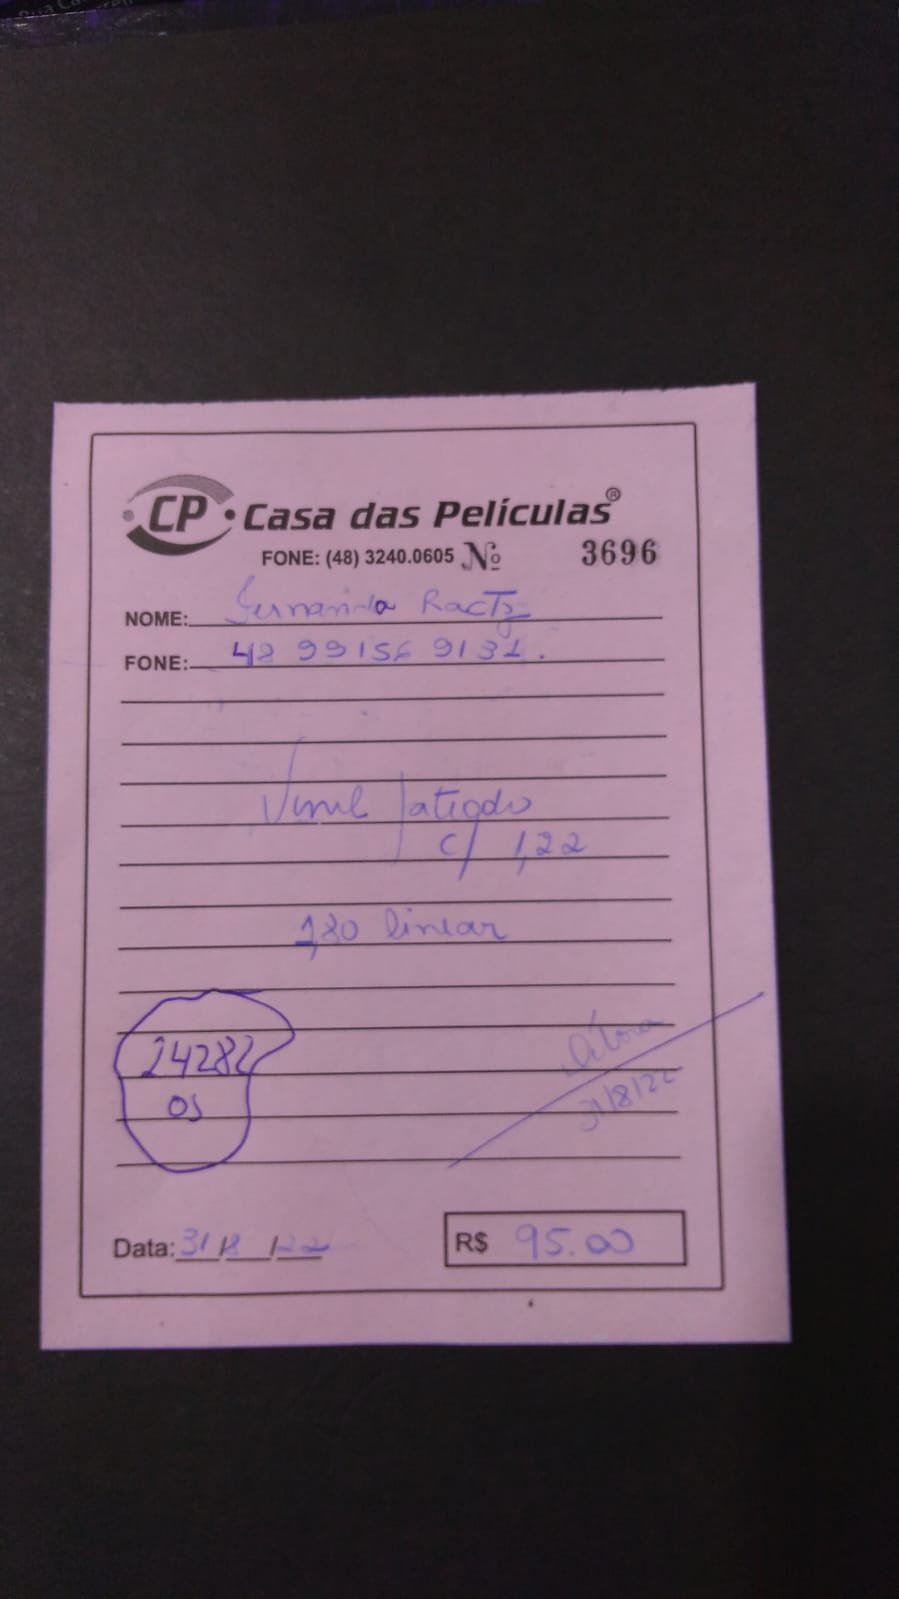 CP Casa das Películas®
FONE: (48) 3240.0605 Nº 3696
NOME: Fernanda
FONE: 48 99156 9131.
Vinil Jateado
c/ 1,22
1,80 linear
24282
OS
Débora
31/8/22
Data: 31/8/22 R$ 95.00